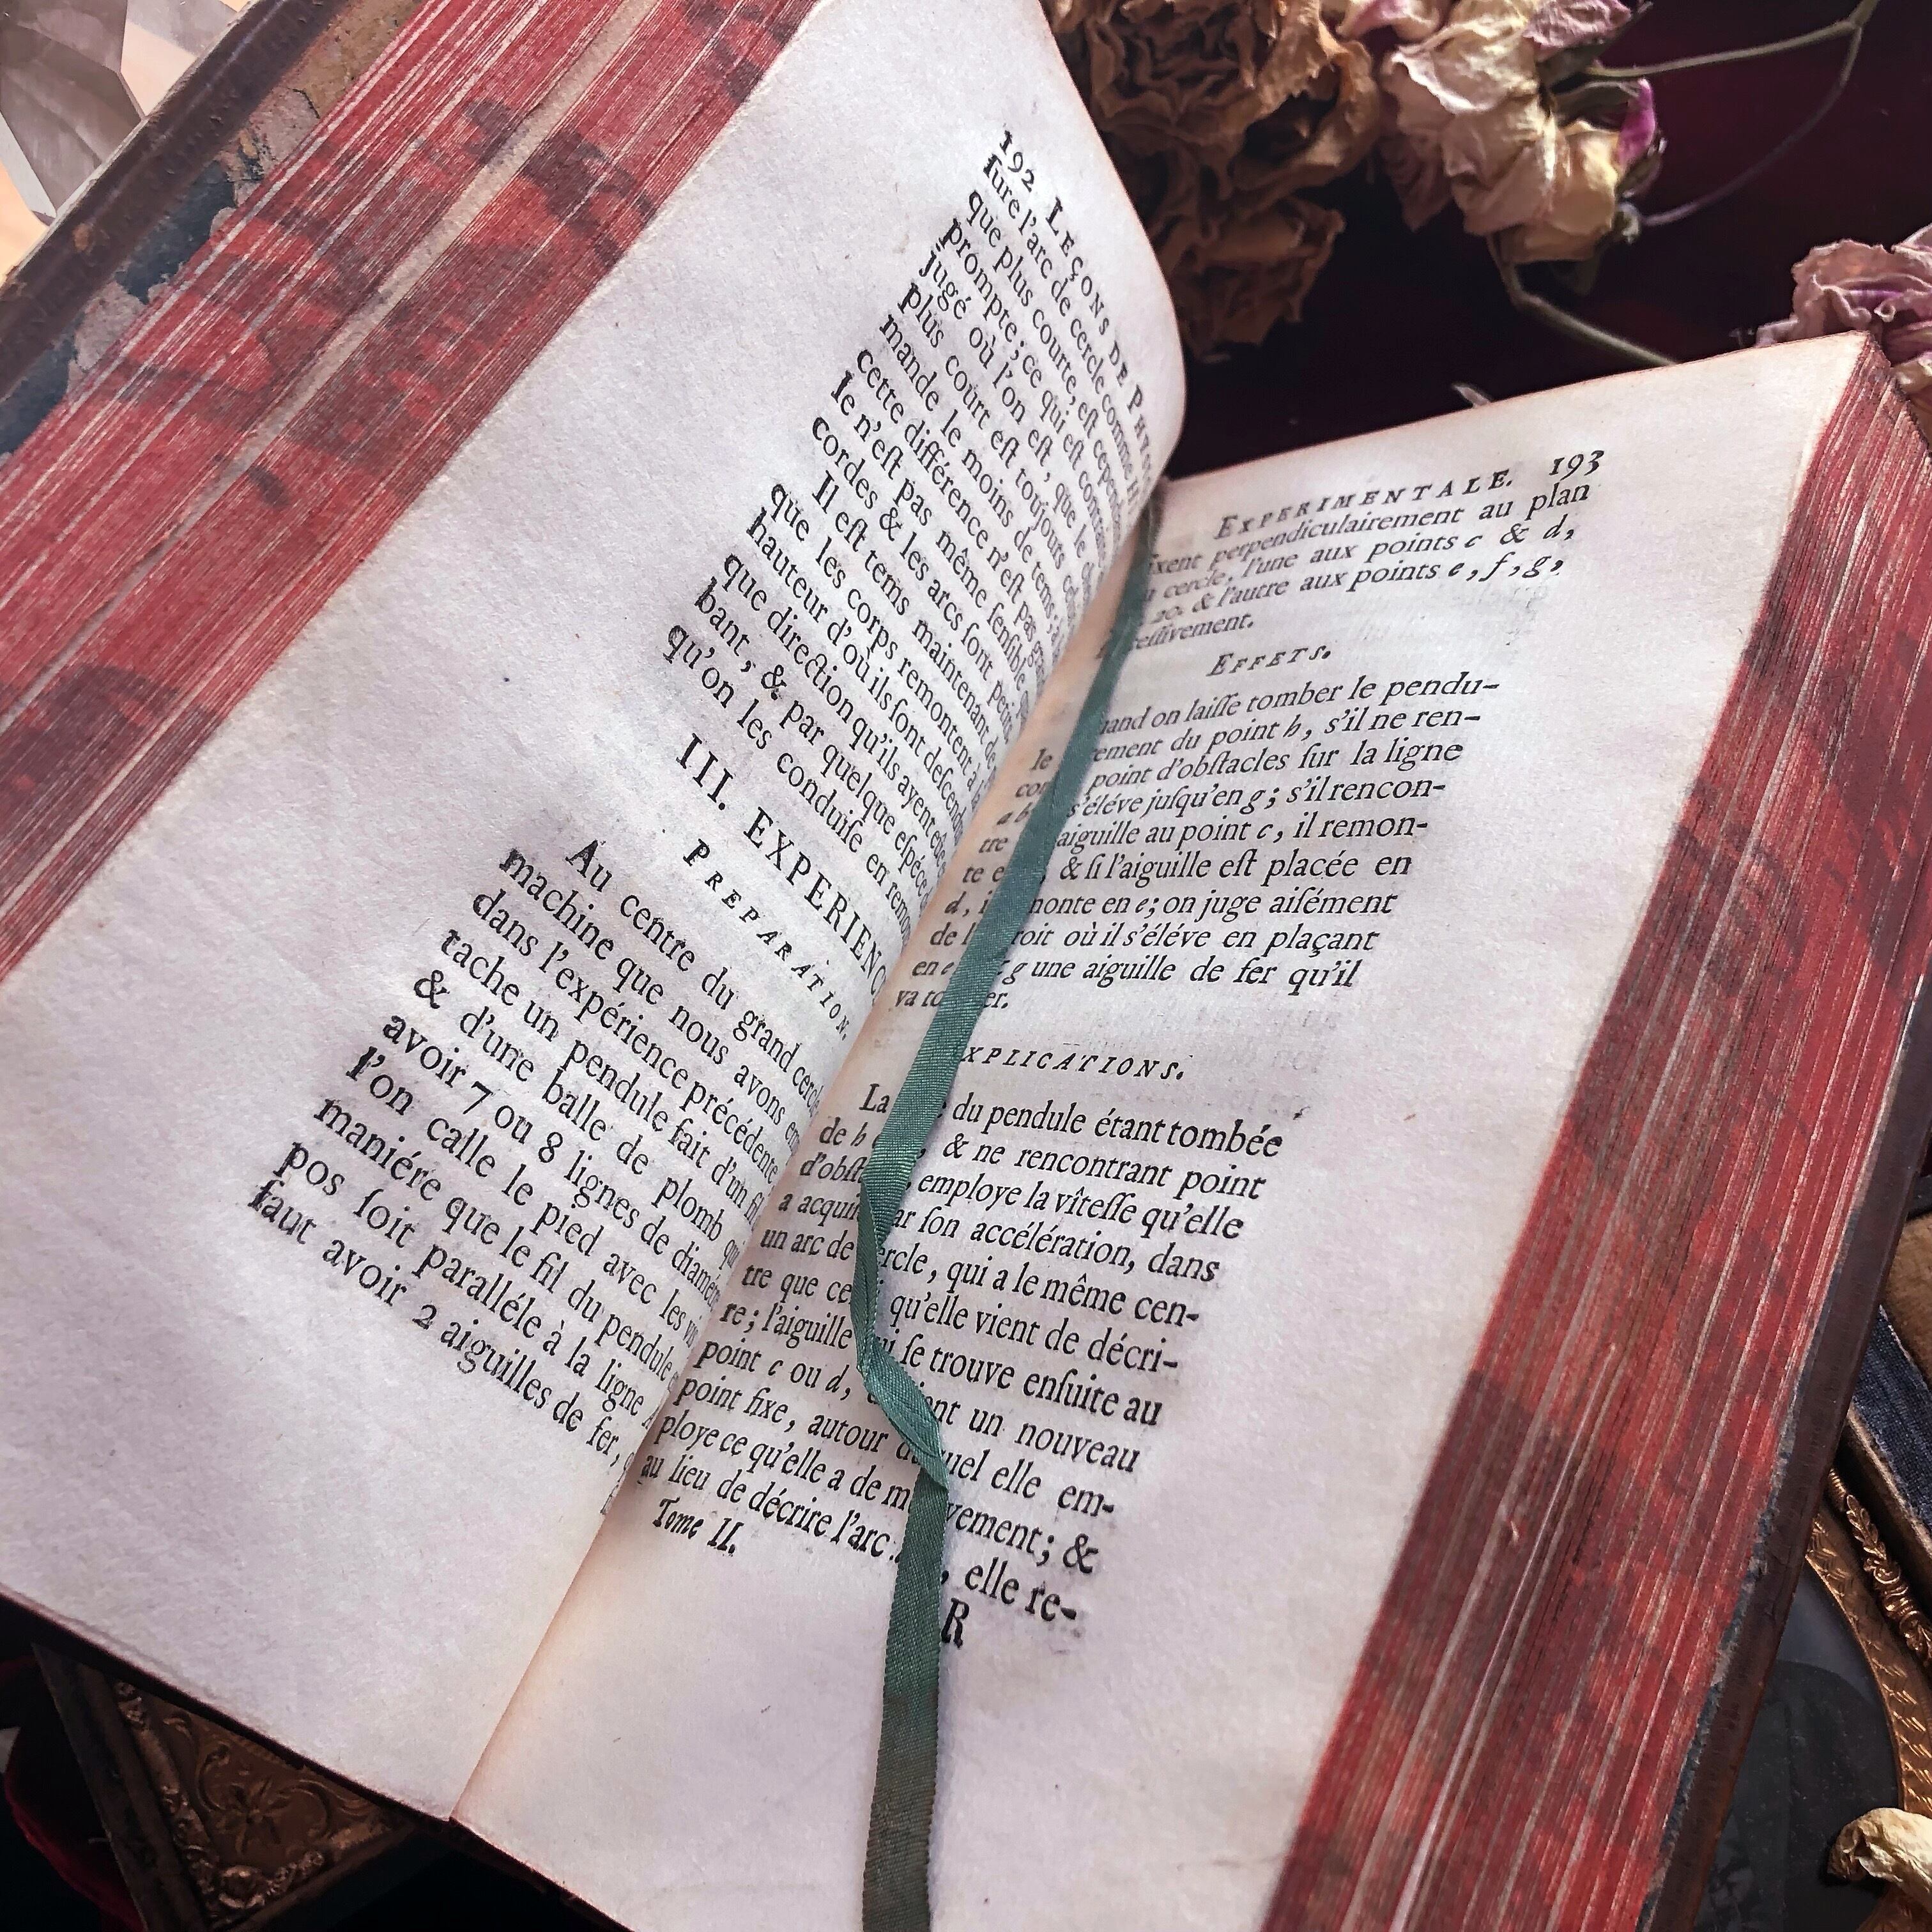 192 LEÇONS DE PHYS
ſure l'arc de cercle comme
que plus courte, eſt cependant
prompte; ce qui eſt contraire
jugé où l'on eſt, que le
plus court eſt toujours
mande le moins de tems;
cette différence n'eſt pas
le n'eſt pas même ſenſible
cordes & les arcs ſont petits.
Il eſt tems maintenant de
que les corps remontent à la
hauteur d'où ils ſont deſcendus
que direction qu'ils ayent
bant, & par quelque eſpéce
qu'on les conduiſe en remon
III. EXPERIENC
PREPARATION.
Au centre du grand cercle
machine que nous avons
dans l'expérience précédente
tache un pendule fait d'un fil
& d'une balle de plomb qui
avoir 7 ou 8 lignes de diamétre
l'on calle le pied avec les
maniére que le fil du pendule
pos ſoit paralléle à la ligne
faut avoir 2 aiguilles de fer,
EXPERIMENTALE. 193
ixent perpendiculairement au plan
cercle, l'une aux points c & d,
20. & l'autre aux points e, f, g,
eſſivement.
EFFETS.
uand on laiſſe tomber le pendu-
le ement du point b, s'il ne ren-
point d'obſtacles ſur la ligne
s'éléve juſqu'en g; s'il rencon-
tre aiguille au point c, il remon-
te & ſi l'aiguille eſt placée en
d, monte en e; on juge aiſément
de roit où il s'éléve en plaçant
en g une aiguille de fer qu'il
va er.
XPLICATIONS.
La du pendule étant tombée
de b , & ne rencontrant point
d'obſt , employe la vîteſſe qu'elle
a acqui ar ſon accélération, dans
un arc de ercle, qui a le même cen-
tre que ce qu'elle vient de décri-
re; l'aiguille ui ſe trouve enſuite au
point c ou d, ent un nouveau
point fixe, autour uel elle em-
ploye ce qu'elle a de m vement; &
au lieu de décrire l'arc , elle re-
Tome II. R